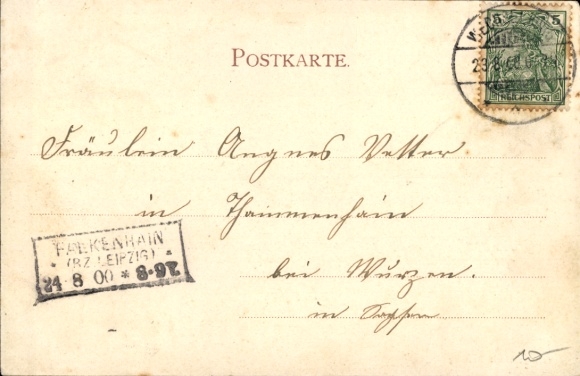 POSTKARTE.
5 5
REICHSPOST
23.8.
Fräulein Angnes Vetter
in Thammenhain
bei Wurzen.
in Sachsen
FALKENHAIN
(BZ. LEIPZIG)
24 8 00 * 8-9V.
10